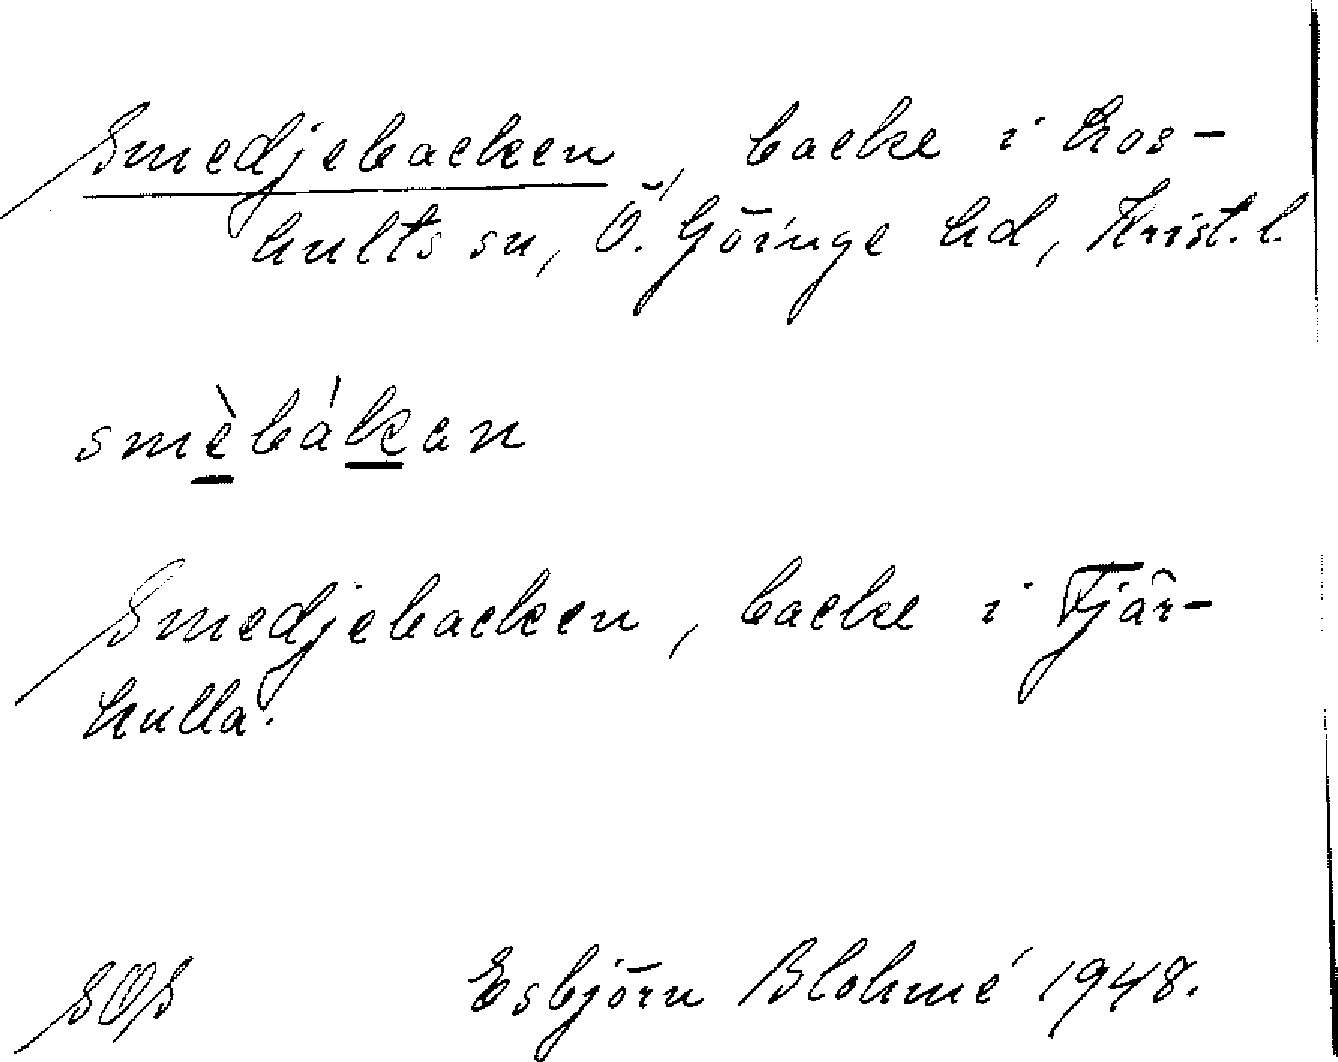 Smedjebacken, backe i Los-
hults sn, Ö. Göinge hd, Krist. l.
smèbákan
Smedjebacken, backe i Tjär-
hulla.
SOS Esbjörn Blohmé 1948.